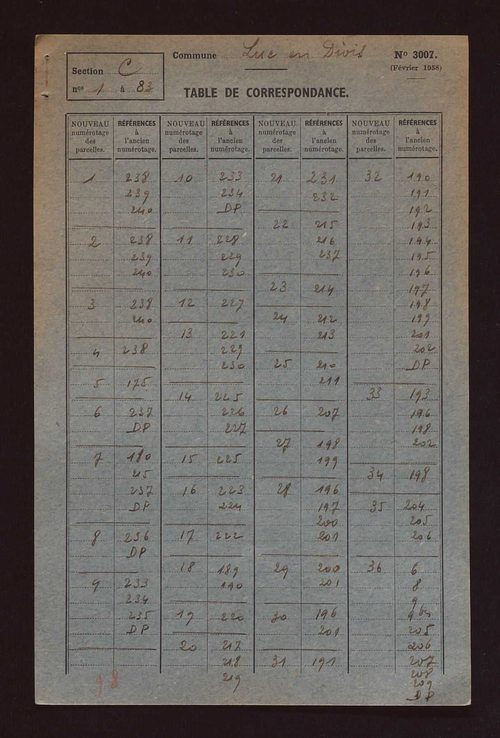 Commune Luc en Diois
N° 3007.
(Février 1938)
Section C
nos 1 à 83
TABLE DE CORRESPONDANCE.
NOUVEAU numérotage des parcelles. RÉFÉRENCES à l'ancien numérotage.
NOUVEAU numérotage des parcelles. RÉFÉRENCES à l'ancien numérotage.
NOUVEAU numérotage des parcelles. RÉFÉRENCES à l'ancien numérotage.
NOUVEAU numérotage des parcelles. RÉFÉRENCES à l'ancien numérotage.
1 238
239
240
2 238
239
240
3 238
240
4 238
5 175
6 237
DP
7 180
215
237
DP
8 236
DP
9 233
234
235
DP
10 233
234
DP
11 228
229
230
12 227
13 221
229
230
14 225
226
227
15 225
16 223
224
17 222
18 189
190
19 220
20 217
218
219
21 231
232
22 215
216
237
23 214
24 212
213
25 210
211
26 207
27 198
199
28 196
197
200
201
29 200
201
30 196
201
31 191
32 190
191
192
193
194
195
196
197
198
199
201
202
DP
33 193
196
198
202
34 198
35 204
205
206
36 6
8
9
9 bis
205
206
207
208
209
DP
98